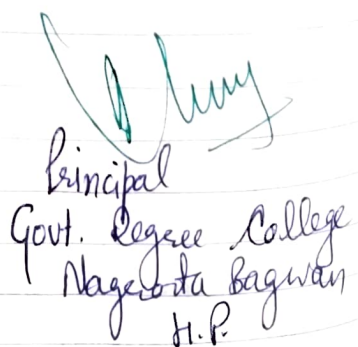 Principal
Govt. Degree College
Nagrota Bagwan
H.P.